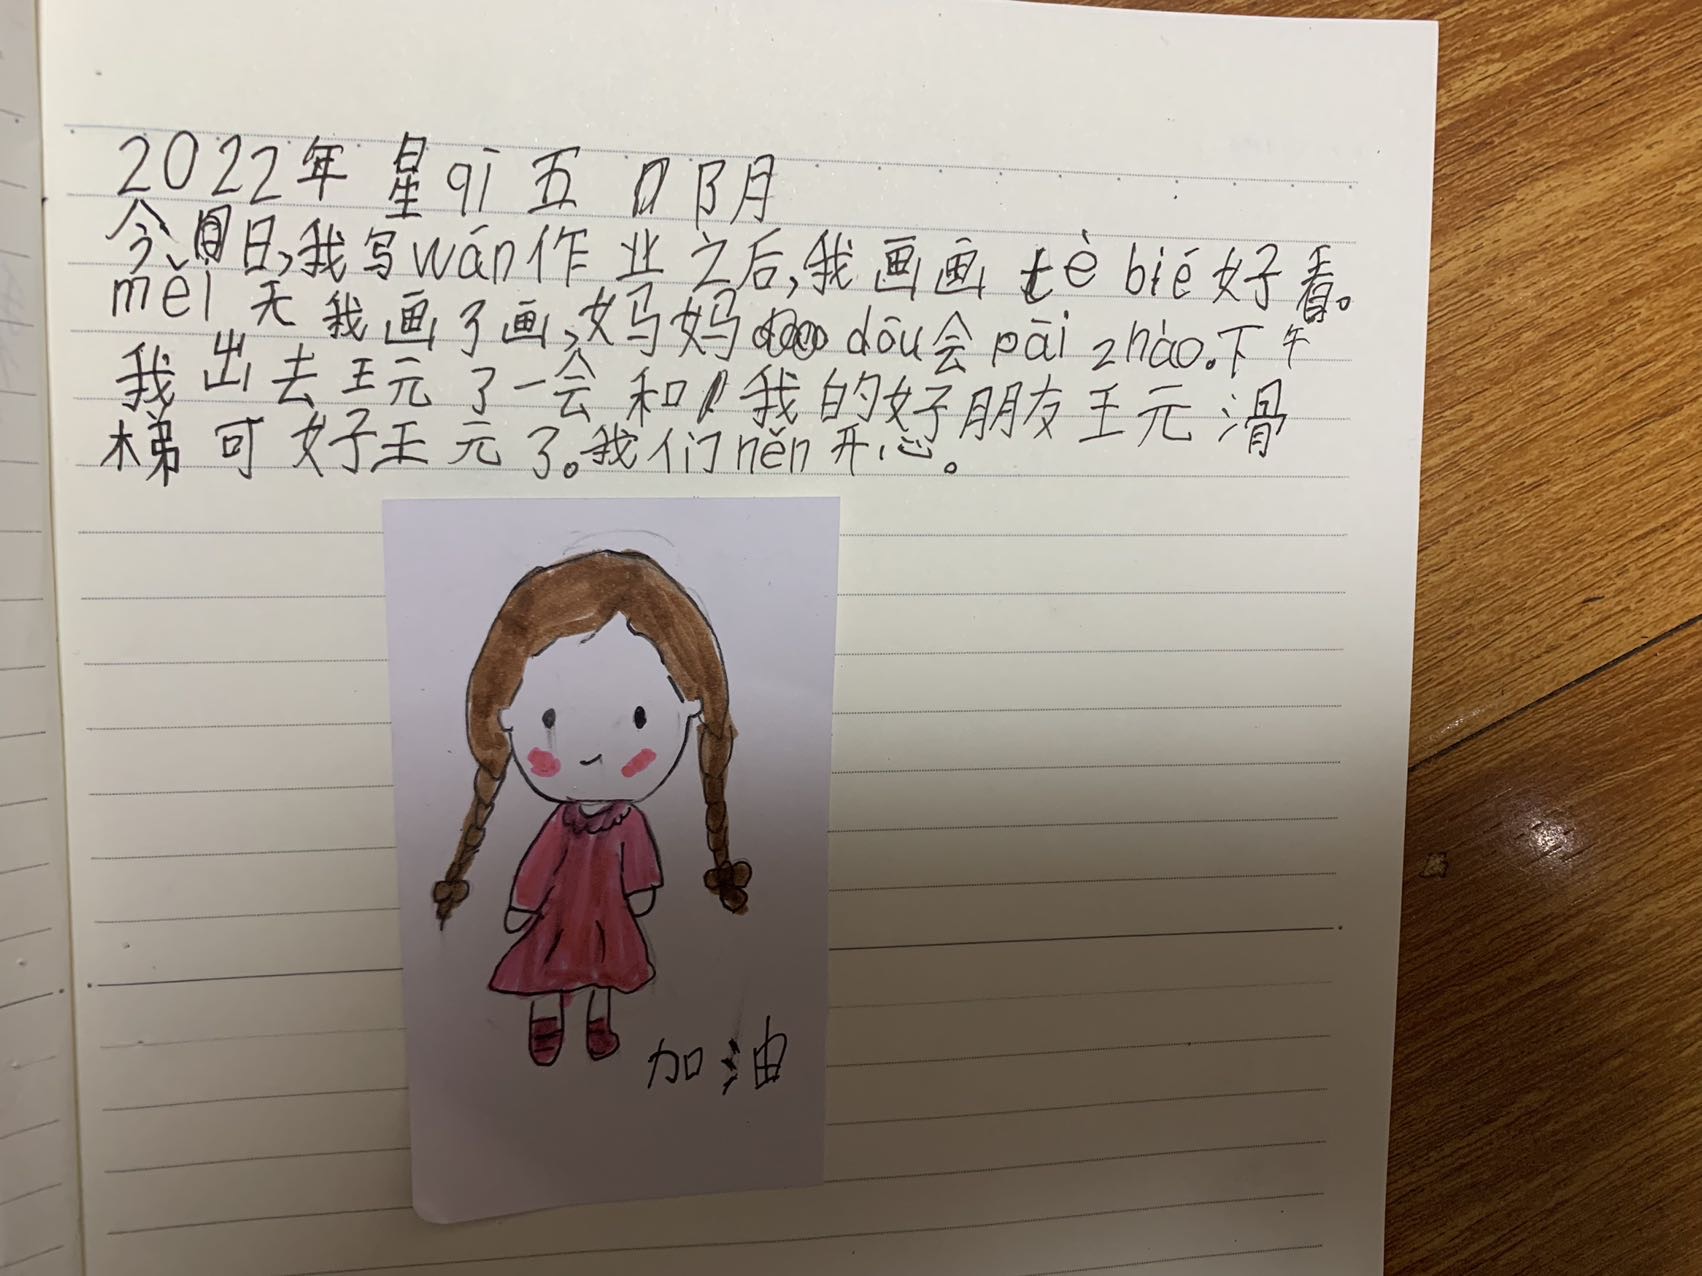 2022年 星qī 五 阴
今日,我写wán作业之后,我画画 tè bié好看。
měi 天 我画了画,妈妈 dōu会 pāi zhào.下午
我出去玩了一会和我的好朋友玩滑
梯可好玩了。我们hěn开心。
加油